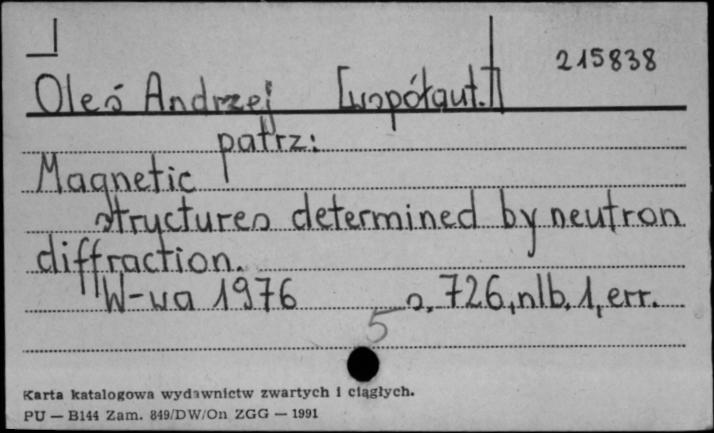 215838
Oleś Andrzej [współaut.]
patrz:
Magnetic
structures determined by neutron
diffraction.
W-wa 1976 s. 726, nlb. 1, err.
5
Karta katalogowa wydawnictw zwartych i ciągłych.
PU — B144 Zam. 849/DW/On ZGG — 1991